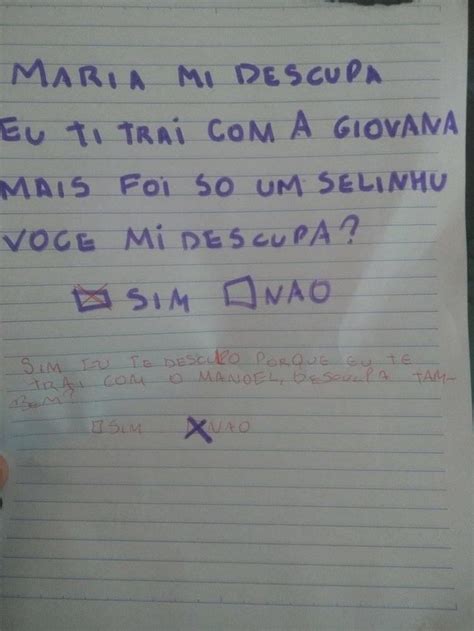 MARIA MI DESCUPA
EU TI TRAI COM A GIOVANA
MAIS FOI SO UM SELINHU
VOCE MI DESCUPA?
SIM NAO
SIM EU TE DESCULPO PORQUE EU TE
TRAI COM O MANOEL, DESCULPA TAM-
BEM?
SIM NAO